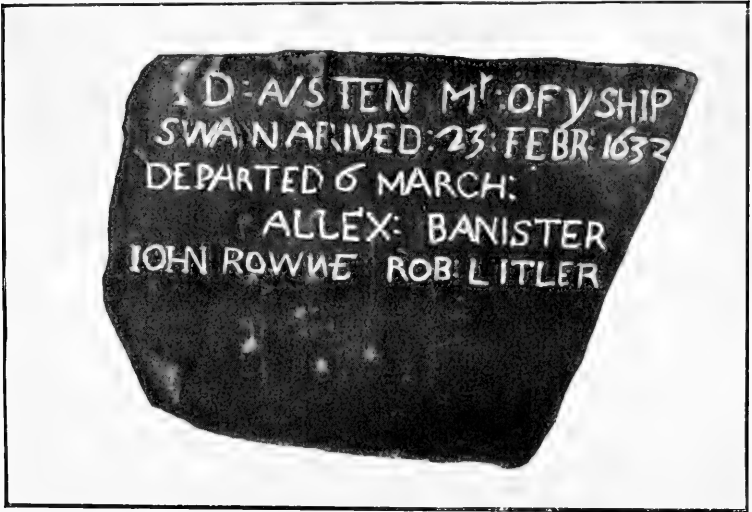 I D: A/STEN Mr: OF y SHIP
SWAN ARIVED: 23: FEBR: 1632
DEPARTED 6 MARCH:
ALLEX: BANISTER
IOHN ROWNE ROB: LITLER